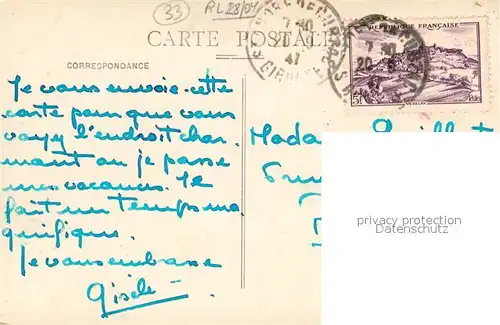 33
RL28/04
CARTE POSTALE
CORRESPONDANCE
RÉPUBLIQUE FRANÇAISE
7 30
20
47
GIRONDE
7 30
20
Je vous envoie cette
carte pour que vous
voyez l'endroit char
mant ou je passe
mes vacances. Il
fait un temps ma
gnifique.
Je vous embrasse
Gisèle
Mada
privacy protection
Datenschutz